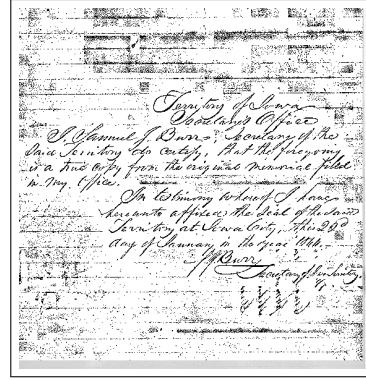 Territory of Iowa
Secretary's Office
I Samuel J. Burr, Secretary of the
Said Territory do certify, that the foregoing
is a true copy from the original memorial filed
in my Office.
In testimony whereof I have
hereunto affixed the Seal of the said
Territory at Iowa City, this 23d
day of January in the year 1844.
S J Burr
Secretary of